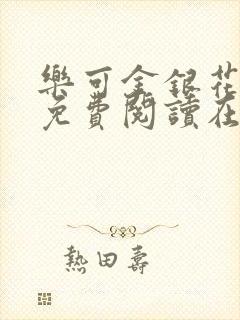 樂可金銀花
免費閱讀在
熱田壽